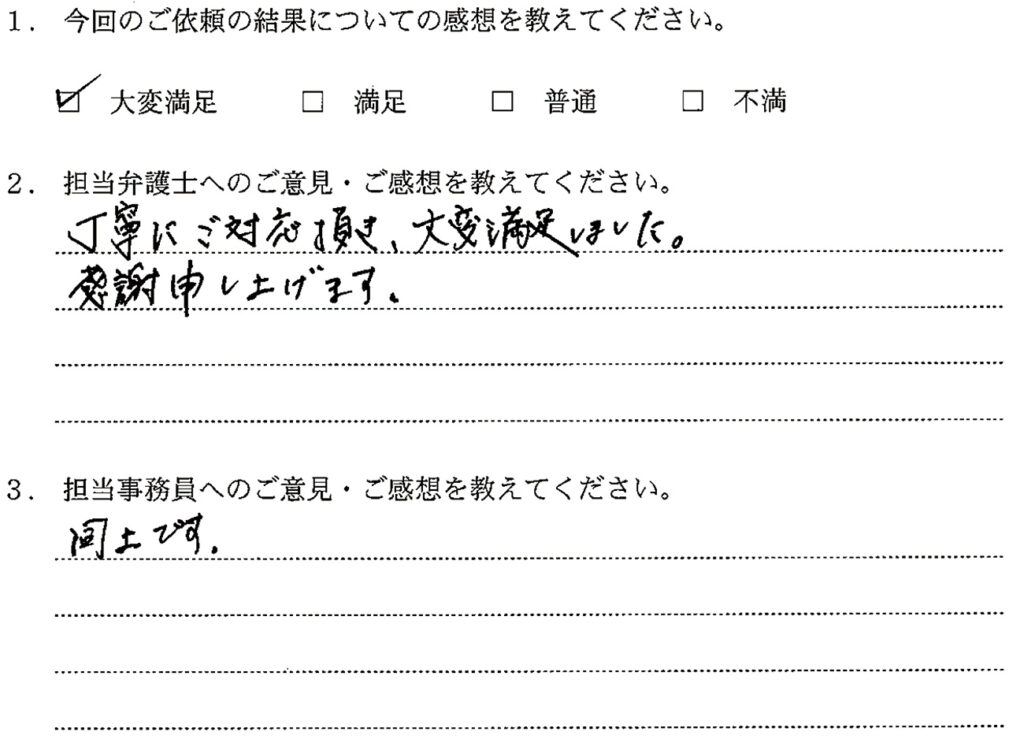 1. 今回のご依頼の結果についての感想を教えてください。
☑ 大変満足 □ 満足 □ 普通 □ 不満
2. 担当弁護士へのご意見・ご感想を教えてください。
丁寧にご対応頂き、大変満足しました。
感謝申し上げます。
3. 担当事務員へのご意見・ご感想を教えてください。
同上です。